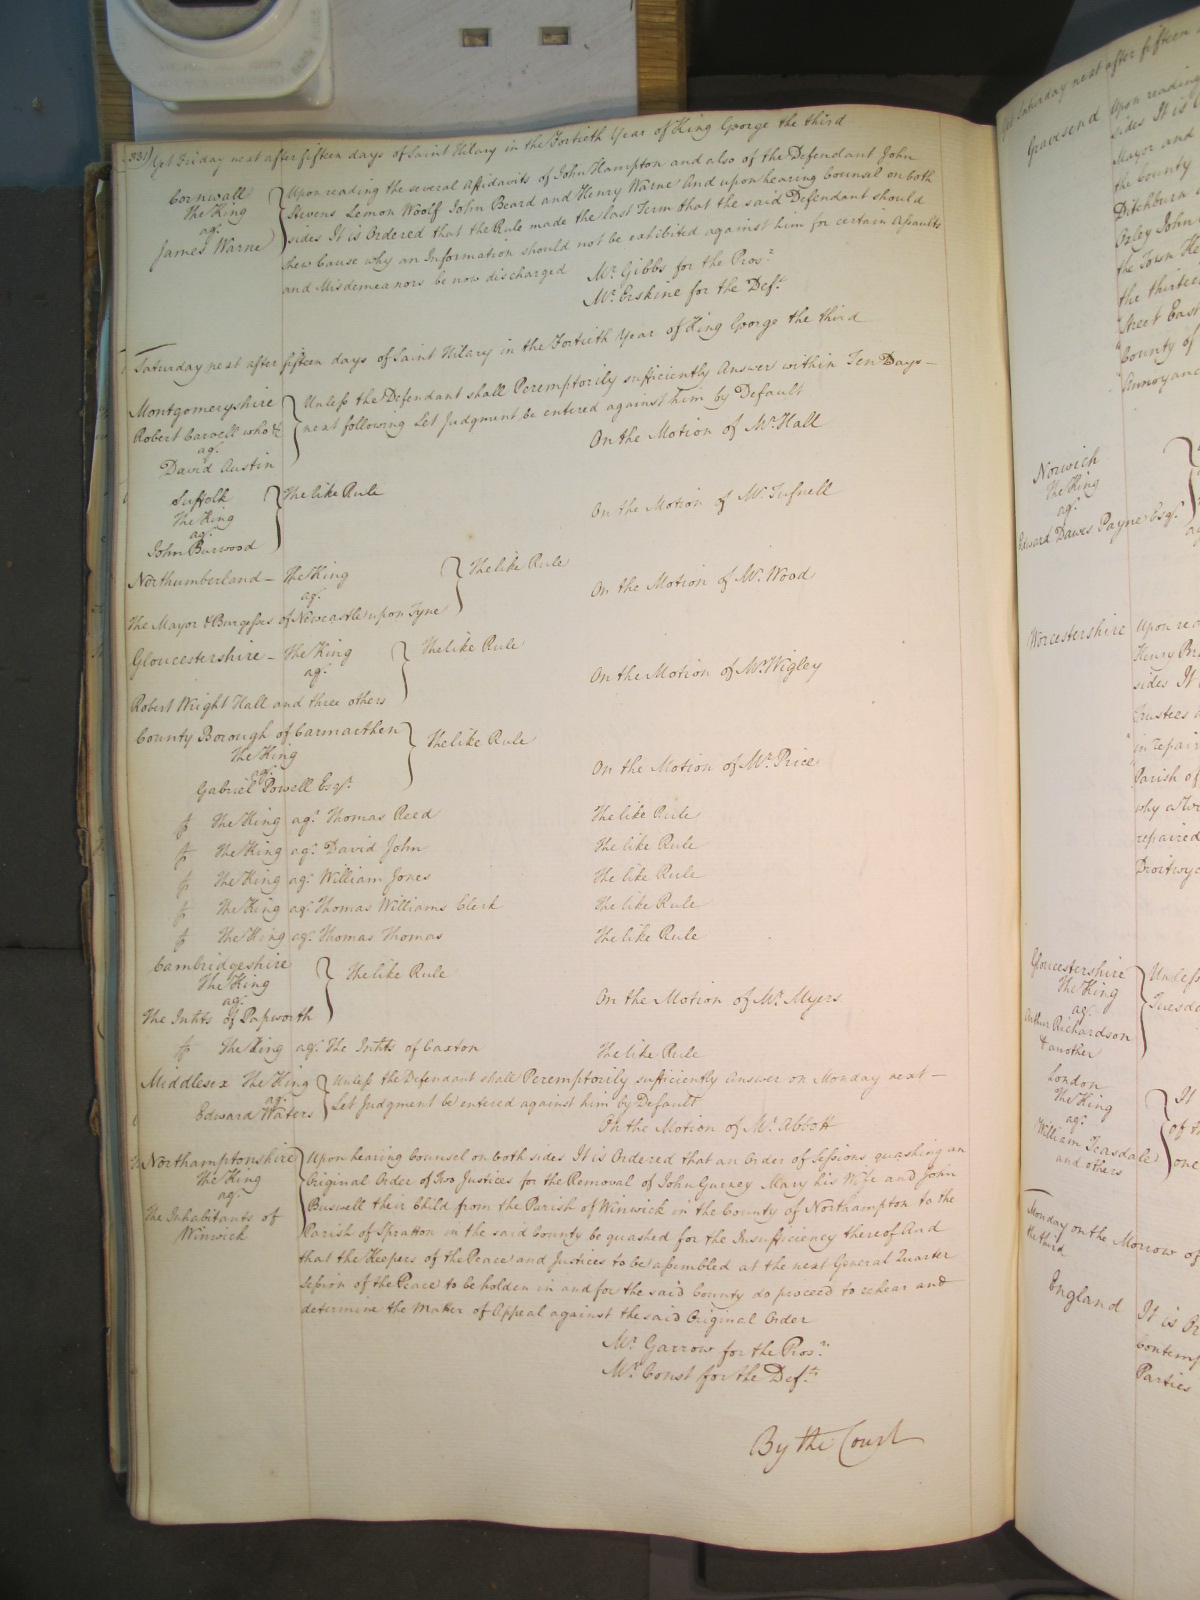 (331) Yet Friday next after fifteen days of Saint Hilary in the Fortieth Year of King George the third
Cornwall
The King
agt
James Warne
Upon reading the several Affidavits of John Hampton and also of the Defendant John
Stevens Lemon Woolf John Beard and Henry Warne And upon hearing Counsel on both
sides It is Ordered that the Rule made the last Term that the said Defendant should
shew Cause why an Information should not be exhibited against him for certain Assaults
and Misdemeanors be now discharged
Mr. Gibbs for the Prosr.
Mr. Erskine for the Deft.
Saturday next after fifteen days of Saint Hilary in the Fortieth Year of King George the third
Montgomeryshire
Robert Carvell who &c
agt
David Austin
Unless the Defendant shall Peremptorily sufficiently Answer within Ten Days
next following Let Judgment be entered against him by Default
On the Motion of Mr. Hall
Suffolk
The King
agt
John Burwood
The like Rule
On the Motion of Mr. Tufnell
Northumberland – The King
agt
The Mayor & Burgesses of Newcastle upon Tyne
The like Rule
On the Motion of Mr. Wood
Gloucestershire – The King
agt
Robert Wright Hall and three others
The like Rule
On the Motion of Mr. Wigley
County Borough of Carmarthen
The King
agt
Gabriel Powell Esqr.
The like Rule
On the Motion of Mr. Price
The King agt. Thomas Reed The like Rule
The King agt. David John The like Rule
The King agt. William Jones The like Rule
The King agt. Thomas Williams Clerk The like Rule
The King agt. Thomas Thomas The like Rule
Cambridgeshire
The King
agt
The Inhts of Papworth
The like Rule
On the Motion of Mr. Myers
The King agt. The Inhts of Caxton The like Rule
Middlesex The King
agt
Edward Waters
Unless the Defendant shall Peremptorily sufficiently Answer on Monday next –
Let Judgment be entered against him by Default
On the Motion of Mr. Abbott
Northamptonshire
The King
agt
The Inhabitants of
Winwick
Upon hearing Counsel on both sides It is Ordered that an Order of Sessions quashing an
Original Order of Two Justices for the Removal of John Gurney Mary his Wife and John
Buswell their Child from the Parish of Winwick in the County of Northampton to the
Parish of Spratton in the said County be quashed for the Insufficiency thereof And
that the Keepers of the Peace and Justices to be assembled at the next General Quarter
Session of the Peace to be holden in and for the said County do proceed to rehear and
determine the Matter of Appeal against the said Original Order
Mr. Garrow for the Prosr.
Mr. Const for the Defts.
By the Court
Yet Saturday next after fifteen
Gravesend
Upon reading
sides It is
Mayor and
the County
Ditchburn
Oxley John
the Town
the thirteen
Street East
County of
Annoyance
Norwich
The King
agt
Edward Dawes Payne Esqr.
Worcestershire
Upon rea
Henry Br
sides It
Trustees
in repair
Parish of
why a
repaired
Droitwyc
Gloucestershire
The King
agt
Arthur Richardson
& another
Unless
Tuesda
London
The King
agt
William Teasdale
and others
It
of th
one
Monday on the Morrow of
the third
England
It is Or
Contemp
Parties